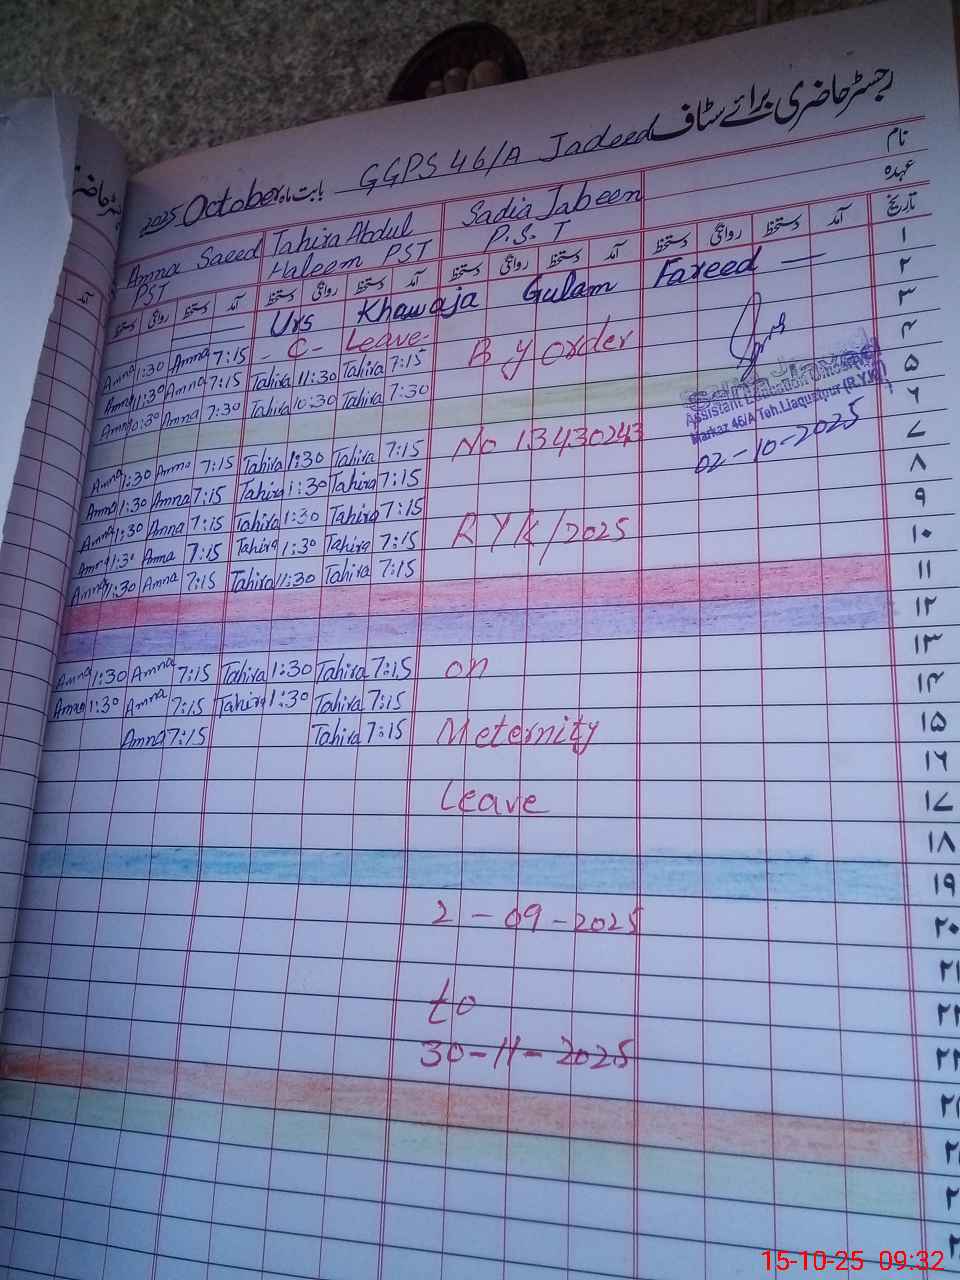 رجسٹر حاضری برائے سٹاف
GGPS 46/A Jadeed بابت ماہ October 2025
نام
عہدہ
Amna Saeed Tahira Abdul Sadia Jabeen
PST Haleem PST P.S.T
تاریخ آمد دستخط روانگی دستخط آمد دستخط روانگی دستخط آمد دستخط روانگی دستخط آمد دستخط روانگی دستخط
Urs Khawaja Gulam Fareed — ۱
۲
Amna 1:30 Amna 7:15 - C - Leave - By order ۳
Amna 11:30 Amna 7:15 Tahira 11:30 Tahira 7:15 ۴
Amna 10:30 Amna 7:30 Tahira 10:30 Tahira 7:30 ۵
Assistant Education Officer
Markaz 46/A Teh. Liaquatpur (R.Y.K)
02-10-2025
۶
Amna 1:30 Amna 7:15 Tahira 1:30 Tahira 7:15 No 13430243 ۷
Amna 1:30 Amna 7:15 Tahira 1:30 Tahira 7:15 ۸
Amna 1:30 Amna 7:15 Tahira 1:30 Tahira 7:15 ۹
Amna 1:30 Amna 7:15 Tahira 1:30 Tahira 7:15 RYK/2025 ۱۰
Amna 11:30 Amna 7:15 Tahira 11:30 Tahira 7:15
۱۱
۱۲
Amna 1:30 Amna 7:15 Tahira 1:30 Tahira 7:15 on ۱۳
Amna 1:30 Amna 7:15 Tahira 1:30 Tahira 7:15 ۱۴
Amna 7:15 Tahira 7:15 Meternity ۱۵
۱۶
Leave ۱۷
۱۸
۱۹
2-09-2025 ۲۰
۲۱
to ۲۲
30-11-2025 ۲۳
15-10-25 09:32